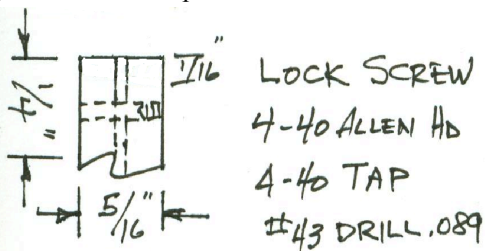 1/16"
1/4"
5/16"
LOCK SCREW
4-40 ALLEN HD
4-40 TAP
#43 DRILL .089